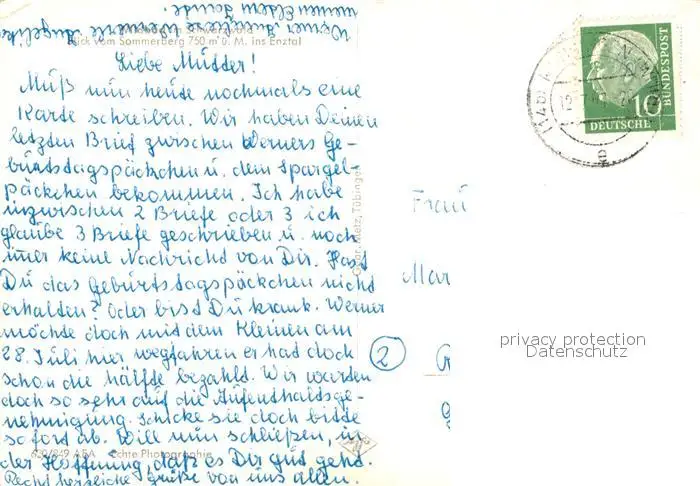 Blick vom Sommerberg 750 m ü. M. ins Enztal
Liebe Mutter!
Muß nun heute nochmals eine
Karte schreiben. Wir haben Deinen
letzten Brief zwischen Werners Ge-
burtstagspäckchen u. dem Spargel-
päckchen bekommen. Ich habe
inzwischen 2 Briefe oder 3 ich
glaube 3 Briefe geschrieben u. noch
immer keine Nachricht von Dir. Hast
Du das Geburtstagspäckchen nicht
erhalten? Oder bist Du krank. Werner
möchte doch mit dem Kleinen am
28. Juli hier wegfahren er had doch
schon die hälfte bezahlt. Wir warten
doch so sehr auf die Aufenthaltsge-
nehmigung. Schicke sie doch bitte
sofort ab. Will nun schließen, in
der Hoffnung, daß es Dir gut gehd.
Recht herzliche Grüße von uns allen.
Werner Anneliese Angelika
620/849 Echte Photographie
Gebr. Metz, Tübingen
DEUTSCHE
BUNDESPOST
10
Frau
Mar
2
privacy protection
Datenschutz